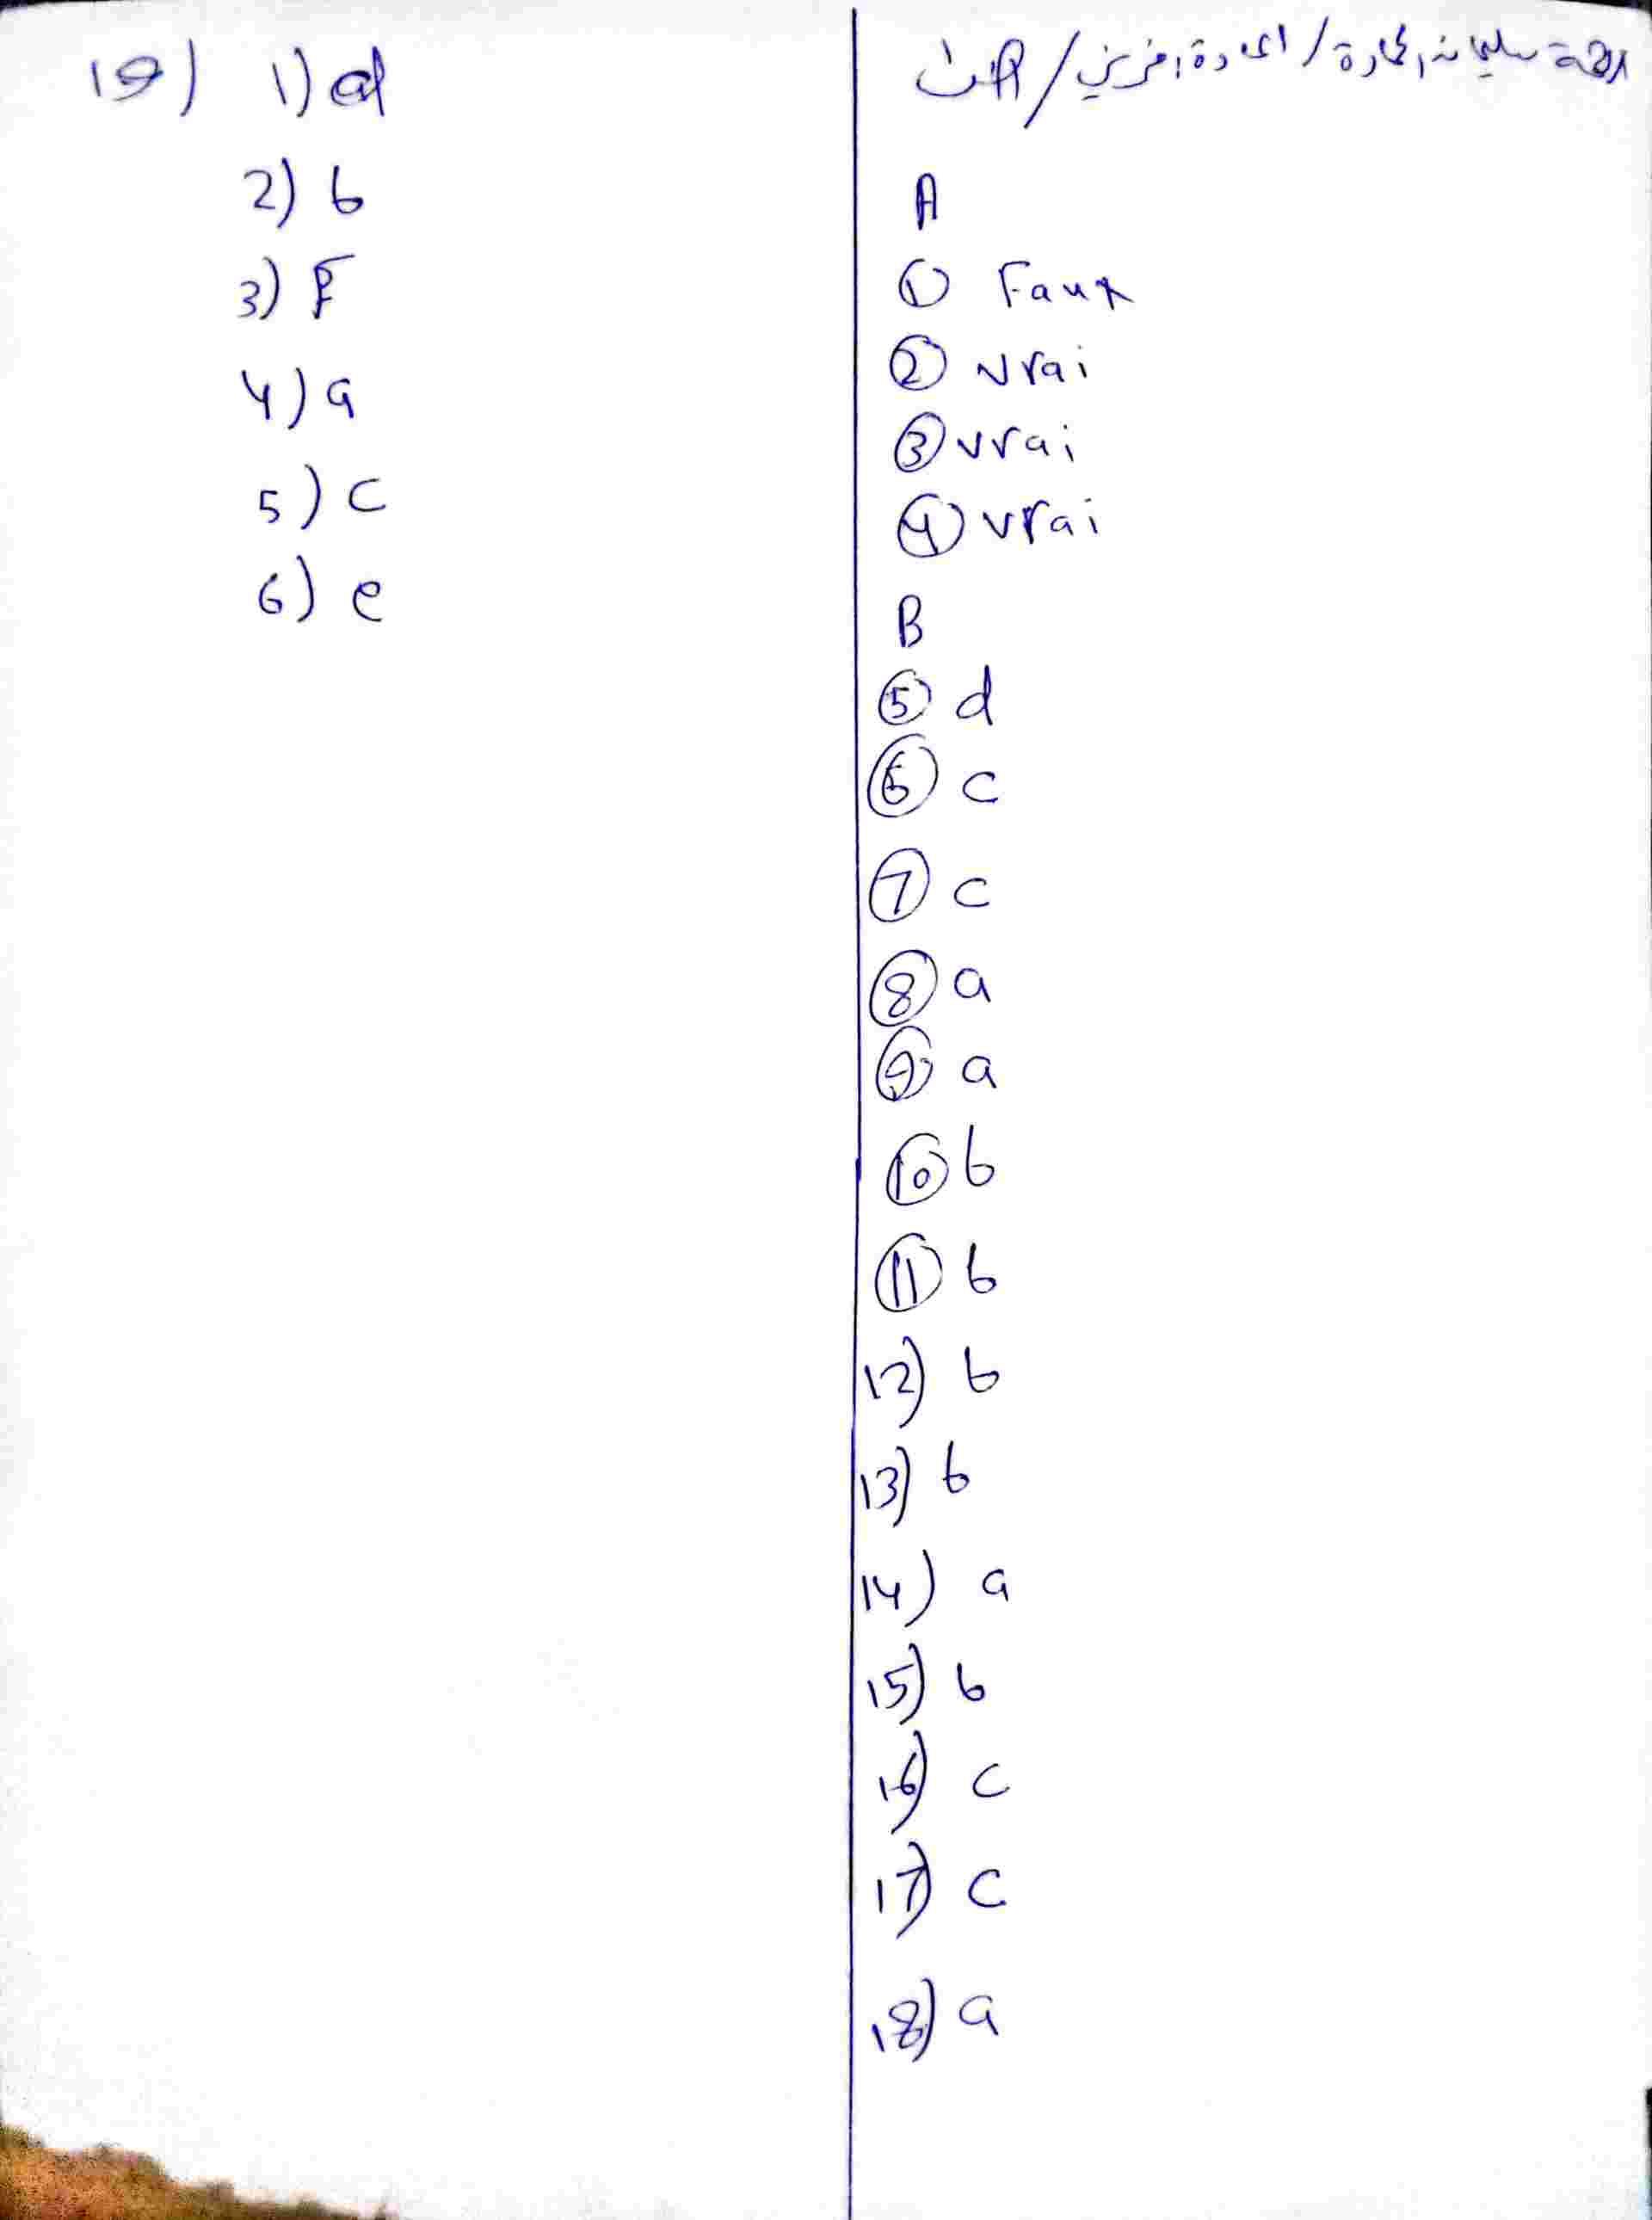 A
① Faux
② vrai
③ vrai
④ vrai
B
⑤ d
⑥ c
⑦ c
⑧ a
⑨ a
⑩ b
⑪ b
12) b
13) b
14) a
15) b
16) c
17) c
18) a
19) 1) d
2) b
3) F
4) a
5) c
6) e